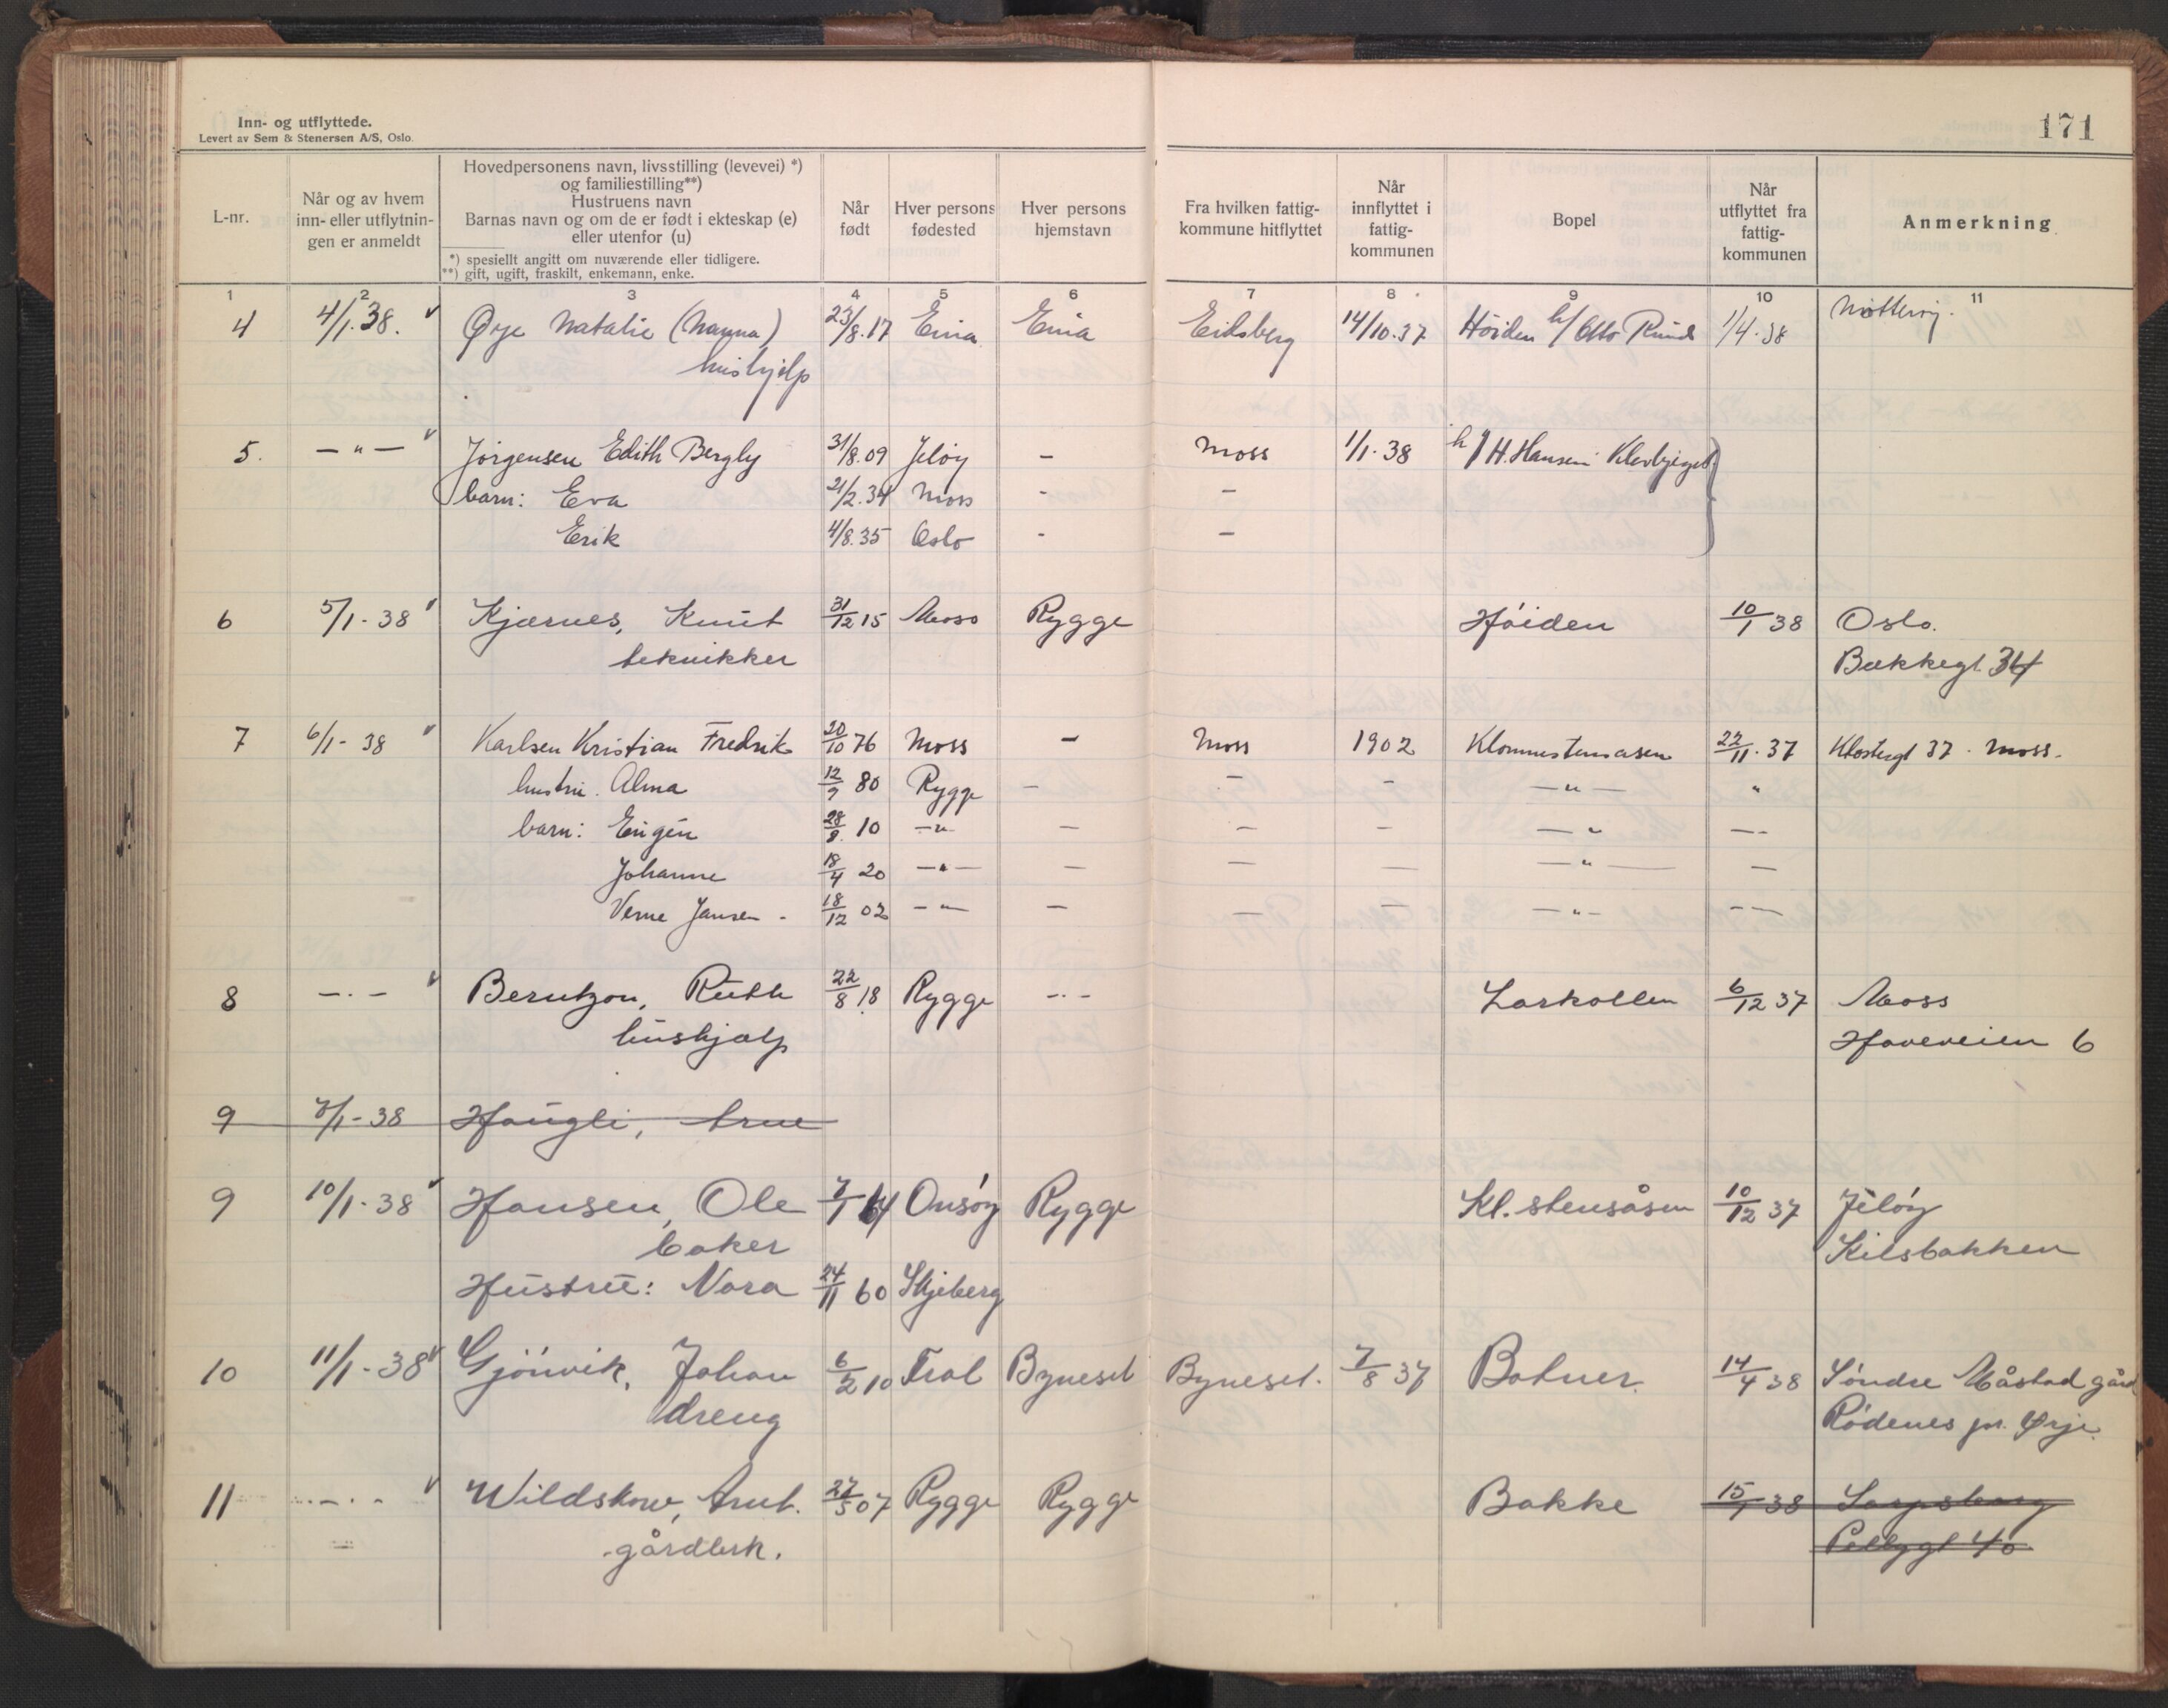 Inn- og utflyttede.
Levert av Sem & Stenersen A/S, Oslo.
171
L-nr.
Når og av hvem inn- eller utflytnin- gen er anmeldt
Hovedpersonens navn, livsstilling (levevei) *)
og familiestilling**)
Hustruens navn
Barnas navn og om de er født i ekteskap (e)
eller utenfor (u)
*) spesiellt angitt om nuværende eller tidligere.
**) gift, ugift, fraskilt, enkemann, enke.
Når født
Hver persons fødested
Hver persons hjemstavn
Fra hvilken fattig- kommune hitflyttet
Når innflyttet i fattig- kommunen
Bopel
Når utflyttet fra fattig- kommunen
Anmerkning
1 2 3 4 5 6 7 8 9 10 11
4 4/1.38. Øye Natalie (Nanna) 23/8.17 Eina Eina Eidsberg 14/10.37 Höiden h/ Otto Rund 1/4.38
hushjelp
5. -"- Jörgensen Edith Bergly 31/8.09 Jelöy - Moss 1/1.38 h/ H. Hansen
barn: Eva 21/2.34 Moss - -
Erik 4/8.35 Oslo - -
6 5/1-38 Kjærnes, Knut 31/12 15 Moss Rygge Höiden 10/1 38 Oslo.
teknikker Bakkegt. 34
7 6/1-38 Karlsen Kristian Fredrik 20/10 76 Moss - Moss 1902 Klommestensasen 22/11.37 Klostergt 37. Moss.
hustru. Alma 12/9 80 Rygge - - - -"- "
barn: Eugén 28/8. 10 -"- - - - -"- --
Johanne 18/4 20 -"- - - - -"- -
Verne Jansen - 18/12 02 -"- - - - -"- --
8 -.- Berntzon, Ruth 22/8.18 Rygge -.- Larkollen 6/12 37 Moss
hushjælp Haveveien 6
9 7/1-38 Haugli, Arne
9 10/1-38 Hansen, Ole 7/1 64 Onsöy Rygge Kl. stensåsen 10/12 37 Jelöy
baker Kilsbakken
Hustru: Nora 24/11 60 Skjeberg
10 11/1-38 Gjönvik, Johan 6/2 10 Frol Byneset Byneset. 7/8 37 Botner. 14/4 38 Söndre Måstad gård
dreng Rödenes pr. Ørje.
11 -.- Wildskow, Arnt. 27/5 07 Rygge Rygge Bakke 15/1 38 Sarpsborg
gårdbrk. Pellygt 40